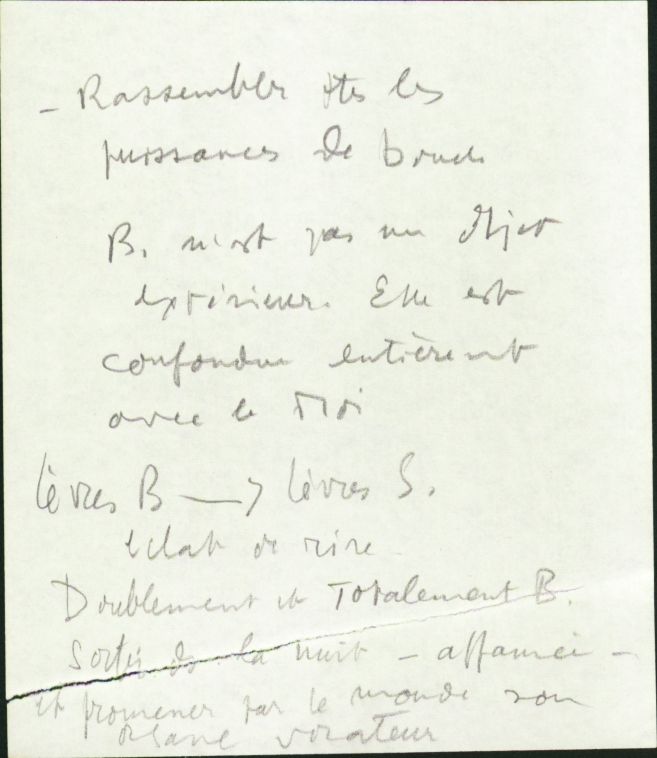 - Rassembler ttes les
puissances de bouche
B. n'est pas un objet
extérieur. Elle est
confondue entièrement
avec le Moi
lèvres B → lèvres S.
éclat de rire
Doublement et Totalement B.
Sortie de la nuit - affamée -
et promener par le monde son
organe vorateur